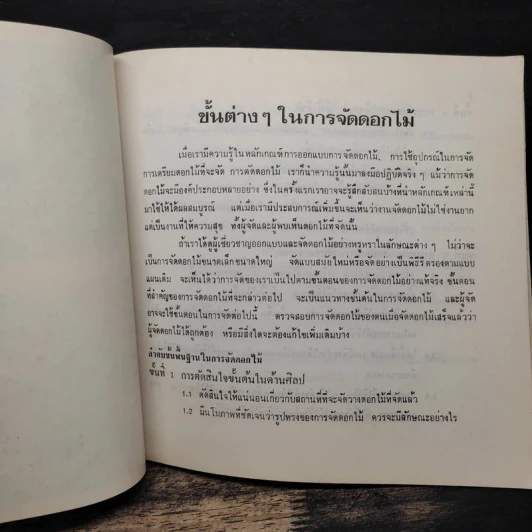 ขั้นต่างๆ ในการจัดดอกไม้
เมื่อเรามีความรู้ในหลักเกณฑ์การออกแบบการจัดดอกไม้, การใช้อุปกรณ์ในการจัด
การเตรียมดอกไม้ที่จะจัด การตัดดอกไม้ เราก็นำความรู้นั้นมาลงมือปฏิบัติจริงๆ แม้ว่าการจัด
ดอกไม้จะมีองค์ประกอบหลายอย่าง ซึ่งในครั้งแรกเราอาจจะรู้สึกสับสนบ้างที่นำหลักเกณฑ์เหล่านี้
มาใช้ให้ได้ผลสมบูรณ์ แต่เมื่อเรามีประสบการณ์เพิ่มขึ้นจะเห็นว่างานจัดดอกไม้ไม่ใช่งานยาก
แต่เป็นงานที่ให้ความสุข ทั้งผู้จัดและผู้พบเห็นดอกไม้ที่จัดนั้น
ถ้าเราได้ดูผู้เชี่ยวชาญออกแบบและจัดดอกไม้อย่างหรูหราในลักษณะต่างๆ ไม่ว่าจะ
เป็นการจัดดอกไม้ขนาดเล็กขนาดใหญ่ จัดแบบสมัยใหม่หรือจัดอย่างเป็นพิธีรีตองตามแบบ
แผนเดิม จะเห็นได้ว่าการจัดของเราเป็นไปตามขั้นตอนของการจัดดอกไม้อย่างแท้จริง ขั้นตอน
ที่สำคัญของการจัดดอกไม้ที่จะกล่าวต่อไป จะเป็นแนวทางขั้นต้นในการจัดดอกไม้ และผู้จัด
อาจจะใช้ขั้นตอนในการจัดต่อไปนี้ ตรวจสอบการจัดดอกไม้ของตนเมื่อจัดดอกไม้เสร็จแล้วว่า
ผู้จัดดอกไม้ได้ถูกต้อง หรือมีสิ่งใดจะต้องแก้ไขเพิ่มเติมบ้าง
ลำดับขั้นพื้นฐานในการจัดดอกไม้
ขั้นที่ 1 การตัดสินใจขั้นต้นในด้านศิลป
1.1 ตัดสินใจให้แน่นอนเกี่ยวกับสถานที่ที่จะจัดวางดอกไม้ที่จัดแล้ว
1.2 มีมโนภาพที่ชัดเจนว่ารูปทรงของการจัดดอกไม้ ควรจะมีลักษณะอย่างไร